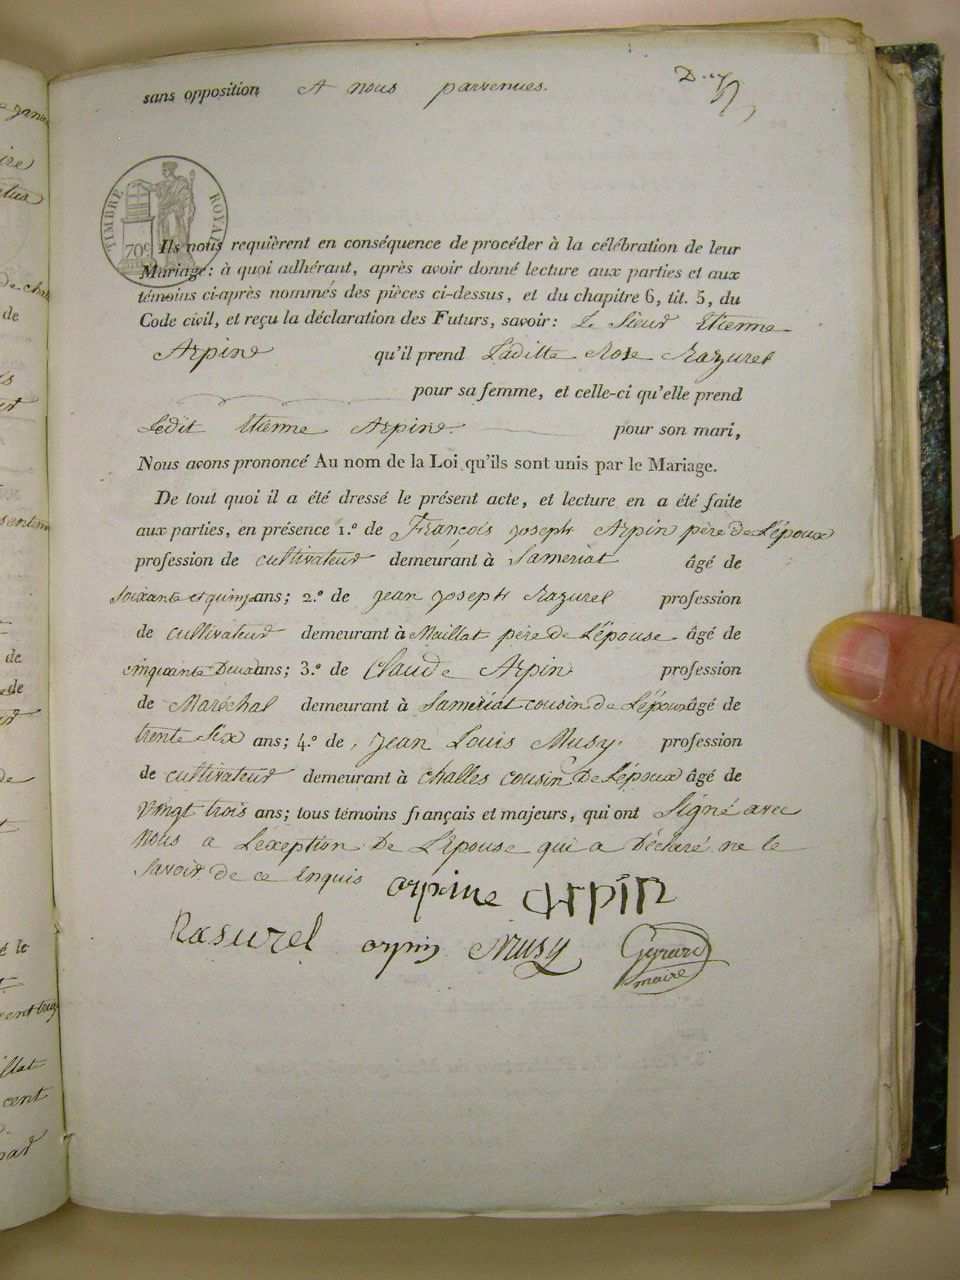 sans opposition A nous parvenues.
TIMBRE ROYAL
70c
Ils nous requièrent en conséquence de procéder à la célébration de leur
Mariage: à quoi adhérant, après avoir donné lecture aux parties et aux
témoins ci-après nommés des pièces ci-dessus, et du chapitre 6, tit. 5, du
Code civil, et reçu la déclaration des Futurs, savoir: Le Sieur Etienne
Arpin qu'il prend Laditte Rose Razurel
pour sa femme, et celle-ci qu'elle prend
Ledit Etienne Arpin. pour son mari,
Nous avons prononcé Au nom de la Loi qu'ils sont unis par le Mariage.
De tout quoi il a été dressé le présent acte, et lecture en a été faite
aux parties, en présence 1.º de François Joseph Arpin père de L'époux
profession de cultivateur demeurant à Samériat âgé de
Soixante et quinze ans; 2.º de Jean Joseph Razurel profession
de cultivateur demeurant à Maillat père de L'épouse âgé de
cinquante Deux ans; 3.º de Claude Arpin profession
de Maréchal demeurant à Samériat cousin de L'époux âgé de
trente Six ans; 4.º de Jean Louis Musy. profession
de cultivateur demeurant à challes cousin de L'époux âgé de
Vingt trois ans; tous témoins français et majeurs, qui ont Signé avec
Nous a L'exeption De L'Epouse qui a Déclaré ne le
Savoir de ce Enquis arpine arpin
Rasurel arpin Musy Gerard
maire